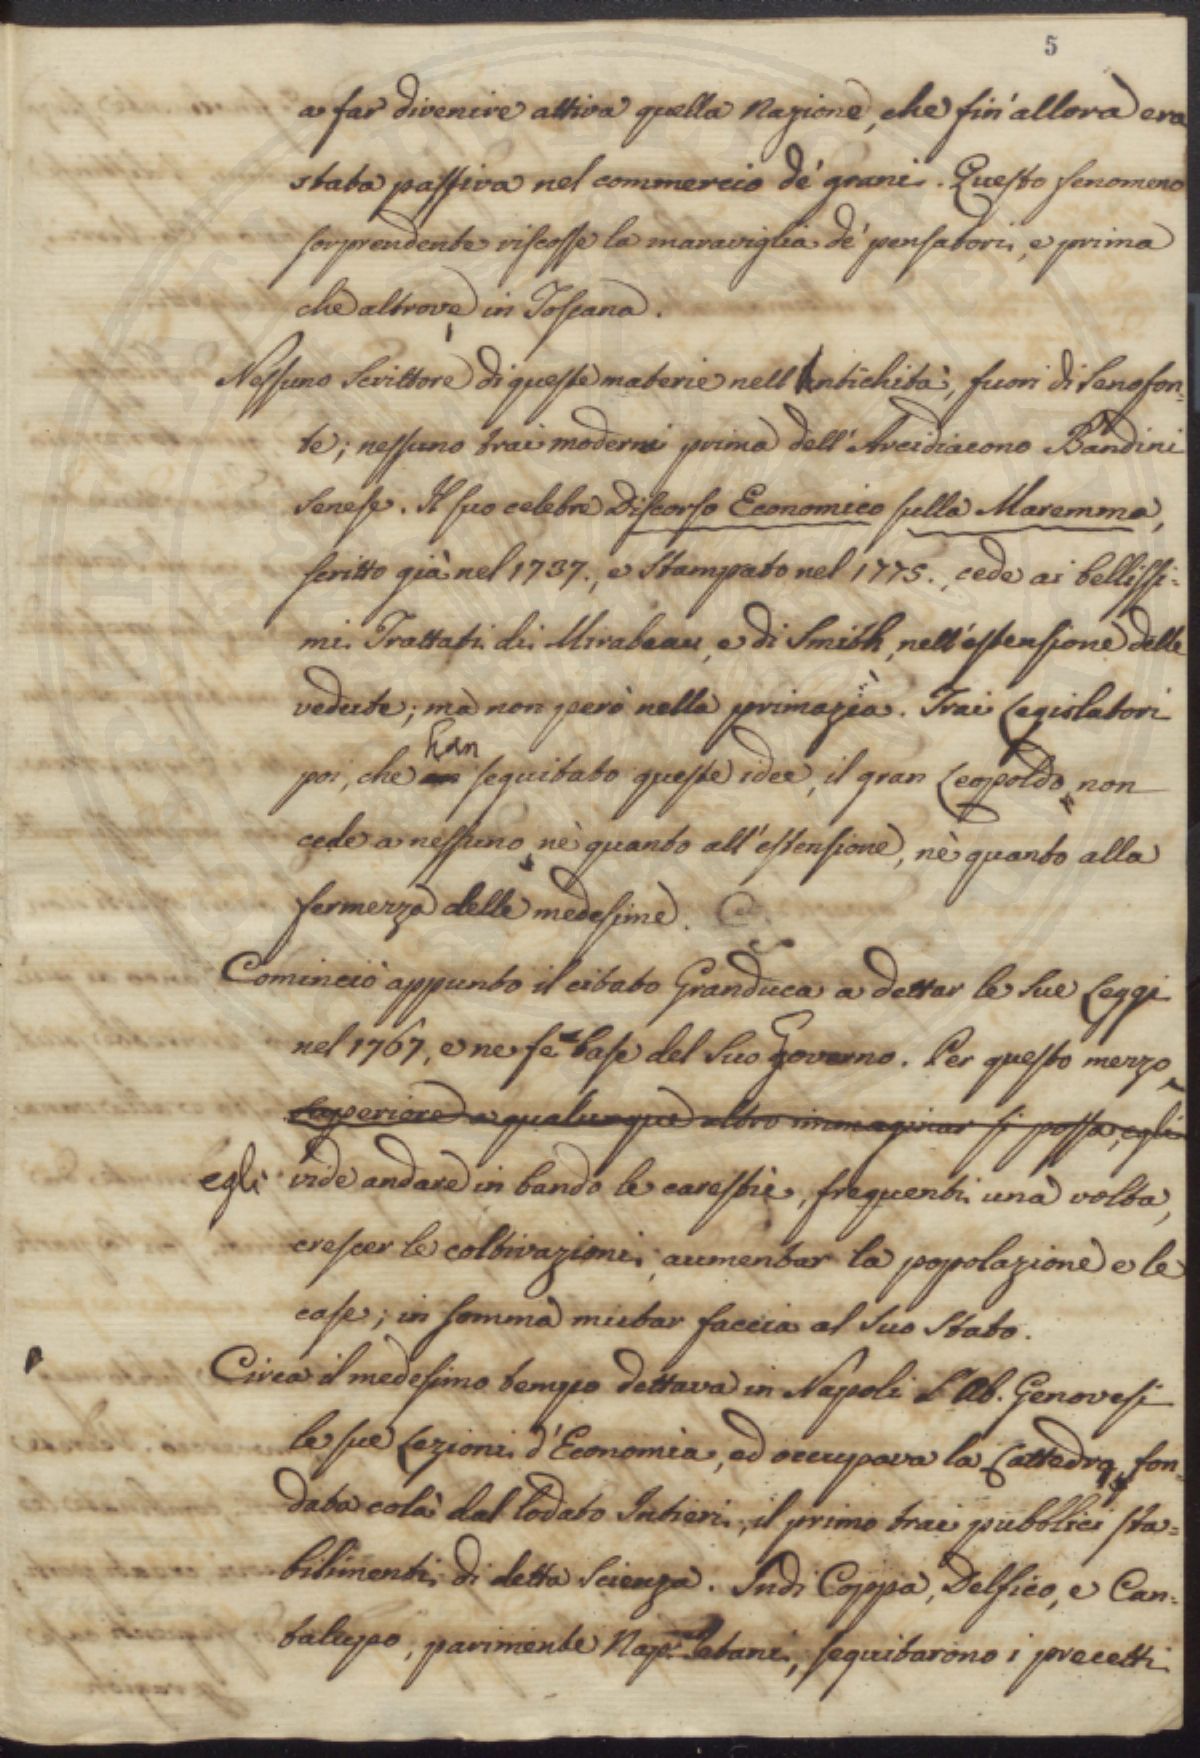 5
a far divenire attiva quella Nazione, che fin'allora era
stata passiva nel commercio de' grani. Questo fenomeno
sorprendente riscosse la maraviglia de' pensatori, e prima
che altrove in Toscana.
Nessuno Scrittore di queste materie nell'Antichità, fuori di Senofon-
te; nessuno trai moderni prima dell'Arcidiacono Bandini
Senese. Il suo celebre Discorso Economico sulla Maremma,
scritto già nel 1737., e Stampato nel 1775., cede ai bellissi-
mi Trattati di Mirabeau, e di Smith, nell'estensione delle
vedute; ma non però nella primazia. Trai Legislatori
poi, che han seguitato queste idee, il gran Leopoldo, non
cede a nessuno, nè quanto all'estensione, nè quanto alla
fermezza delle medesime.
Cominciò appunto il citato Granduca a dettar le Sue Leggi
nel 1767, e ne fe base del Suo Governo. Per questo mezzo
superiore a qualunque altro immaginar si possa, egli
egli vide andare in bando le carestie, frequenti una volta,
crescer le coltivazioni, aumentar la popolazione e le
case; in somma mutar faccia al Suo Stato.
Circa il medesimo tempo dettava in Napoli l'Ab. Genovesi
le sue Lezioni d'Economia, ed occupava la Cattedra, fon-
data colà dal lodato Intieri, il primo trai pubblici sta-
bilimenti di detta Scienza. Indi Coppa, Delfico, e Can-
talupo, parimente Napoletani, seguitarono i precetti